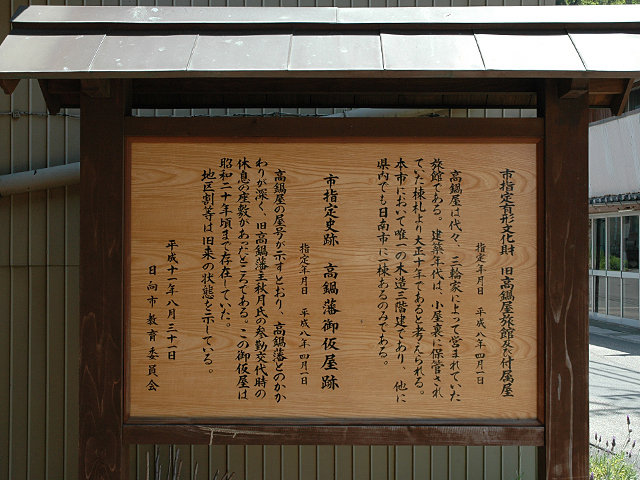 市指定有形文化財　旧高鍋屋旅館及び付属屋
指定年月日　平成八年四月一日
高鍋屋は代々、三輪家によって営まれていた
旅館である。建築年代は、小屋裏に保管され
ていた棟札より大正十年であると考えられる。
本市において唯一の木造三階建であり、他に
県内でも日南市に一棟あるのみである。
市指定史跡　高鍋藩御仮屋跡
指定年月日　平成八年四月一日
高鍋屋の屋号が示すとおり、高鍋藩とのかか
わりが深く、旧高鍋藩主秋月氏の参勤交代時の
休息の座敷があったところである。この御仮屋は
昭和二十年頃まで存在していた。
地区割等は旧来の状態を示している。
平成十一年八月三十一日
日向市教育委員会